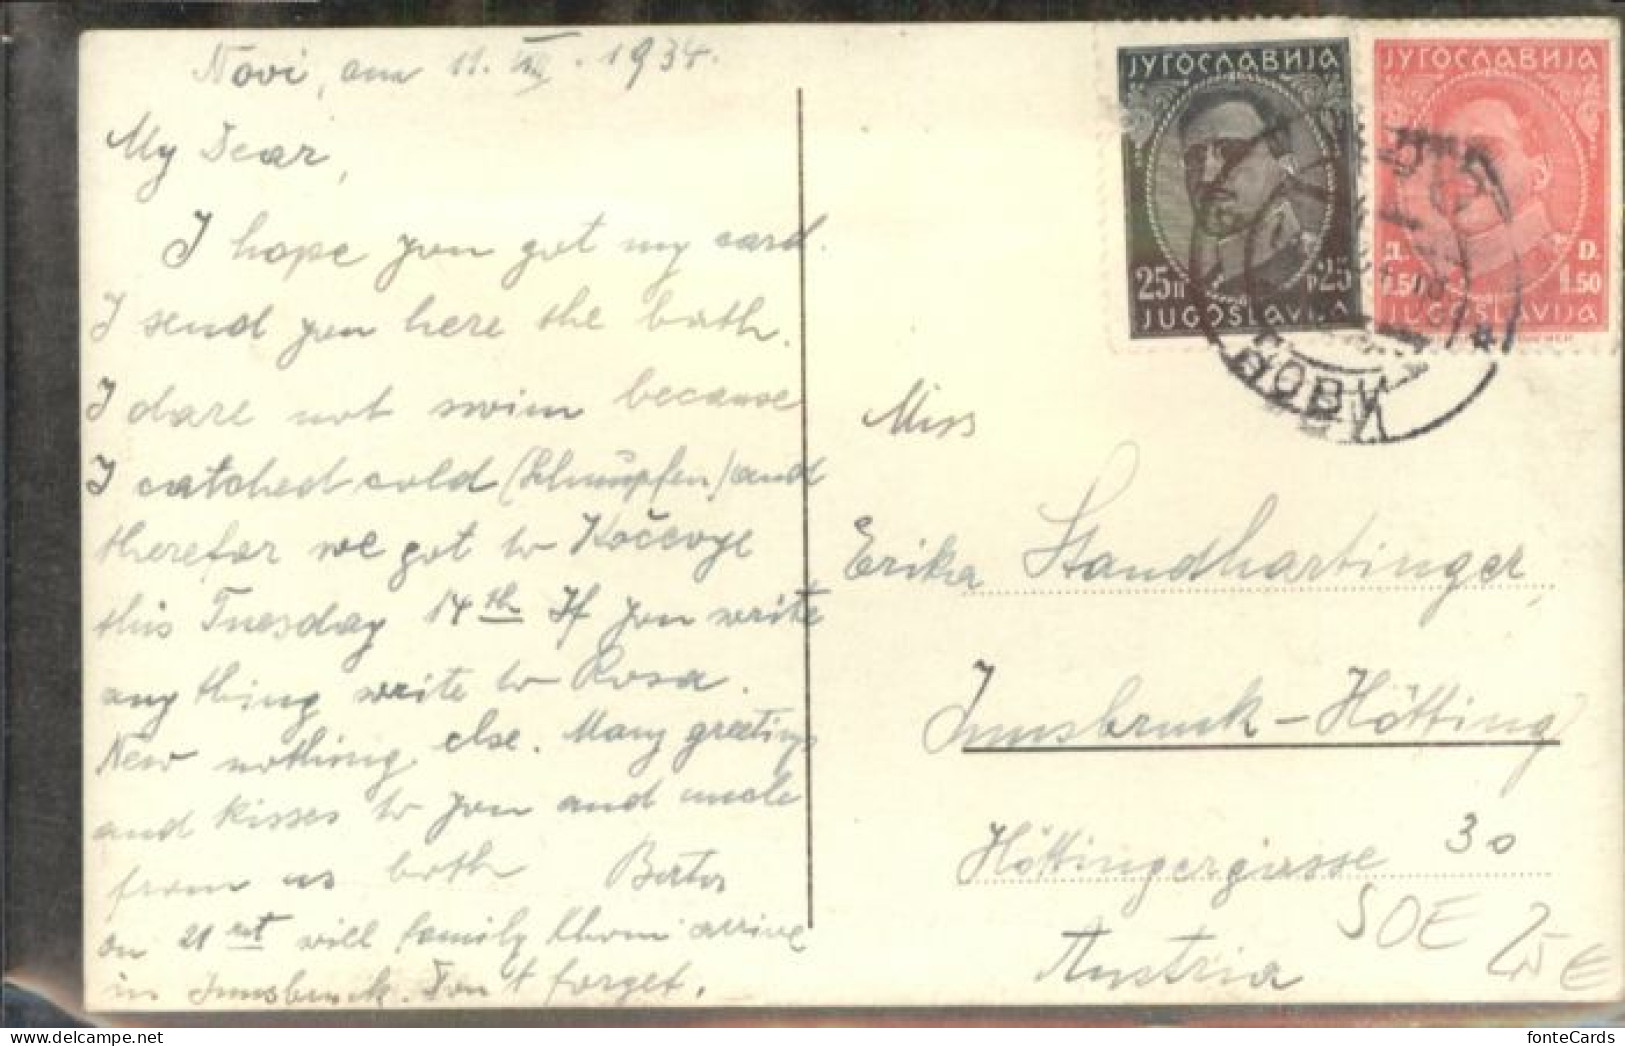 Novi, am 11. VIII. 1934.
My Dear,
I hope you got my card.
I send you here the bath.
I dare not swim because
I catched cold (Schnupfen) and
therefor we got to Kočevje
this Tuesday 14th If you write
any thing write to Rosa.
New nothing else. Many greetings
and kisses to you and uncle
from us both
on 21st will family arrive
in Innsbruck. Don't forget.
ЈУГОСЛАВИЈА
25п p25
JUGOSLAVIJA
ЈУГОСЛАВИЈА
Д. D.
1.50 1.50
JUGOSLAVIJA
НОВИ
Miss
Erika Standhartinger,
Innsbruck-Hötting
Höttingergasse 30
Austria
SOE 25€
fonteCards